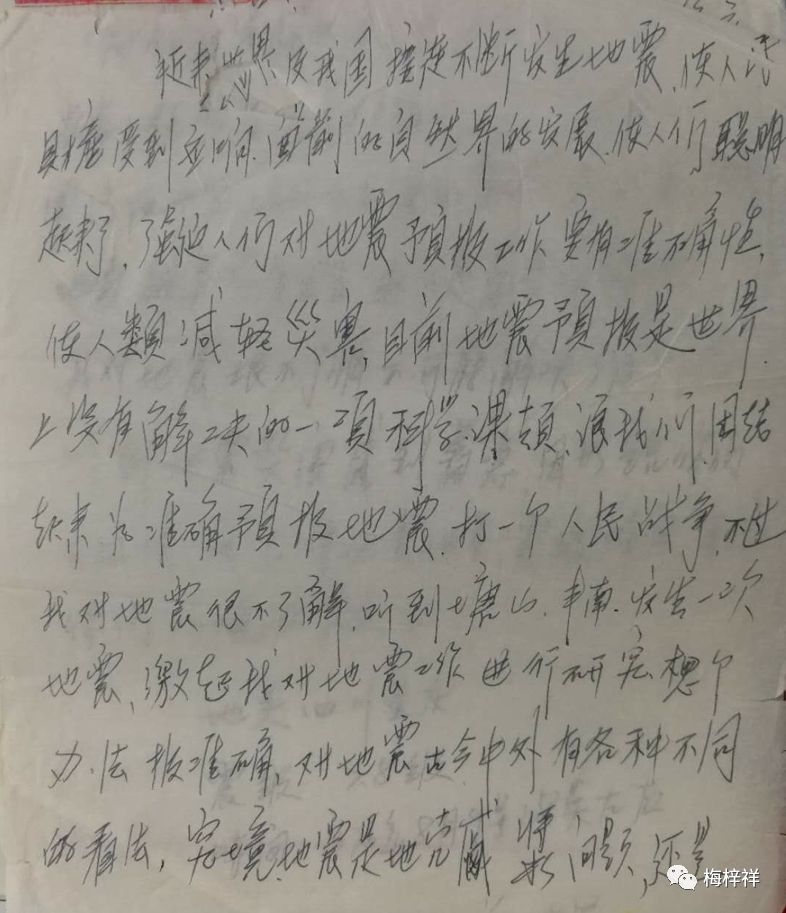 近来世界及我国接连不断发生地震，使人民
财产受到影响。当前的自然界的发展，使人们聪明
起来了，强迫人们对地震予报工作要有准确性，
使人類减轻災害，目前地震予报是世界
上没有解决的一项科学课题，让我们团结
起来为准确予报地震，打一个人民战争，不过
我对地震很不了解，听到唐山、丰南、发生一次
地震，激起我对地震工作进行研究，想个
办法报准确，对地震古今中外有各种不同
的看法，究境地震是地壳 问题，还是
梅梓祥